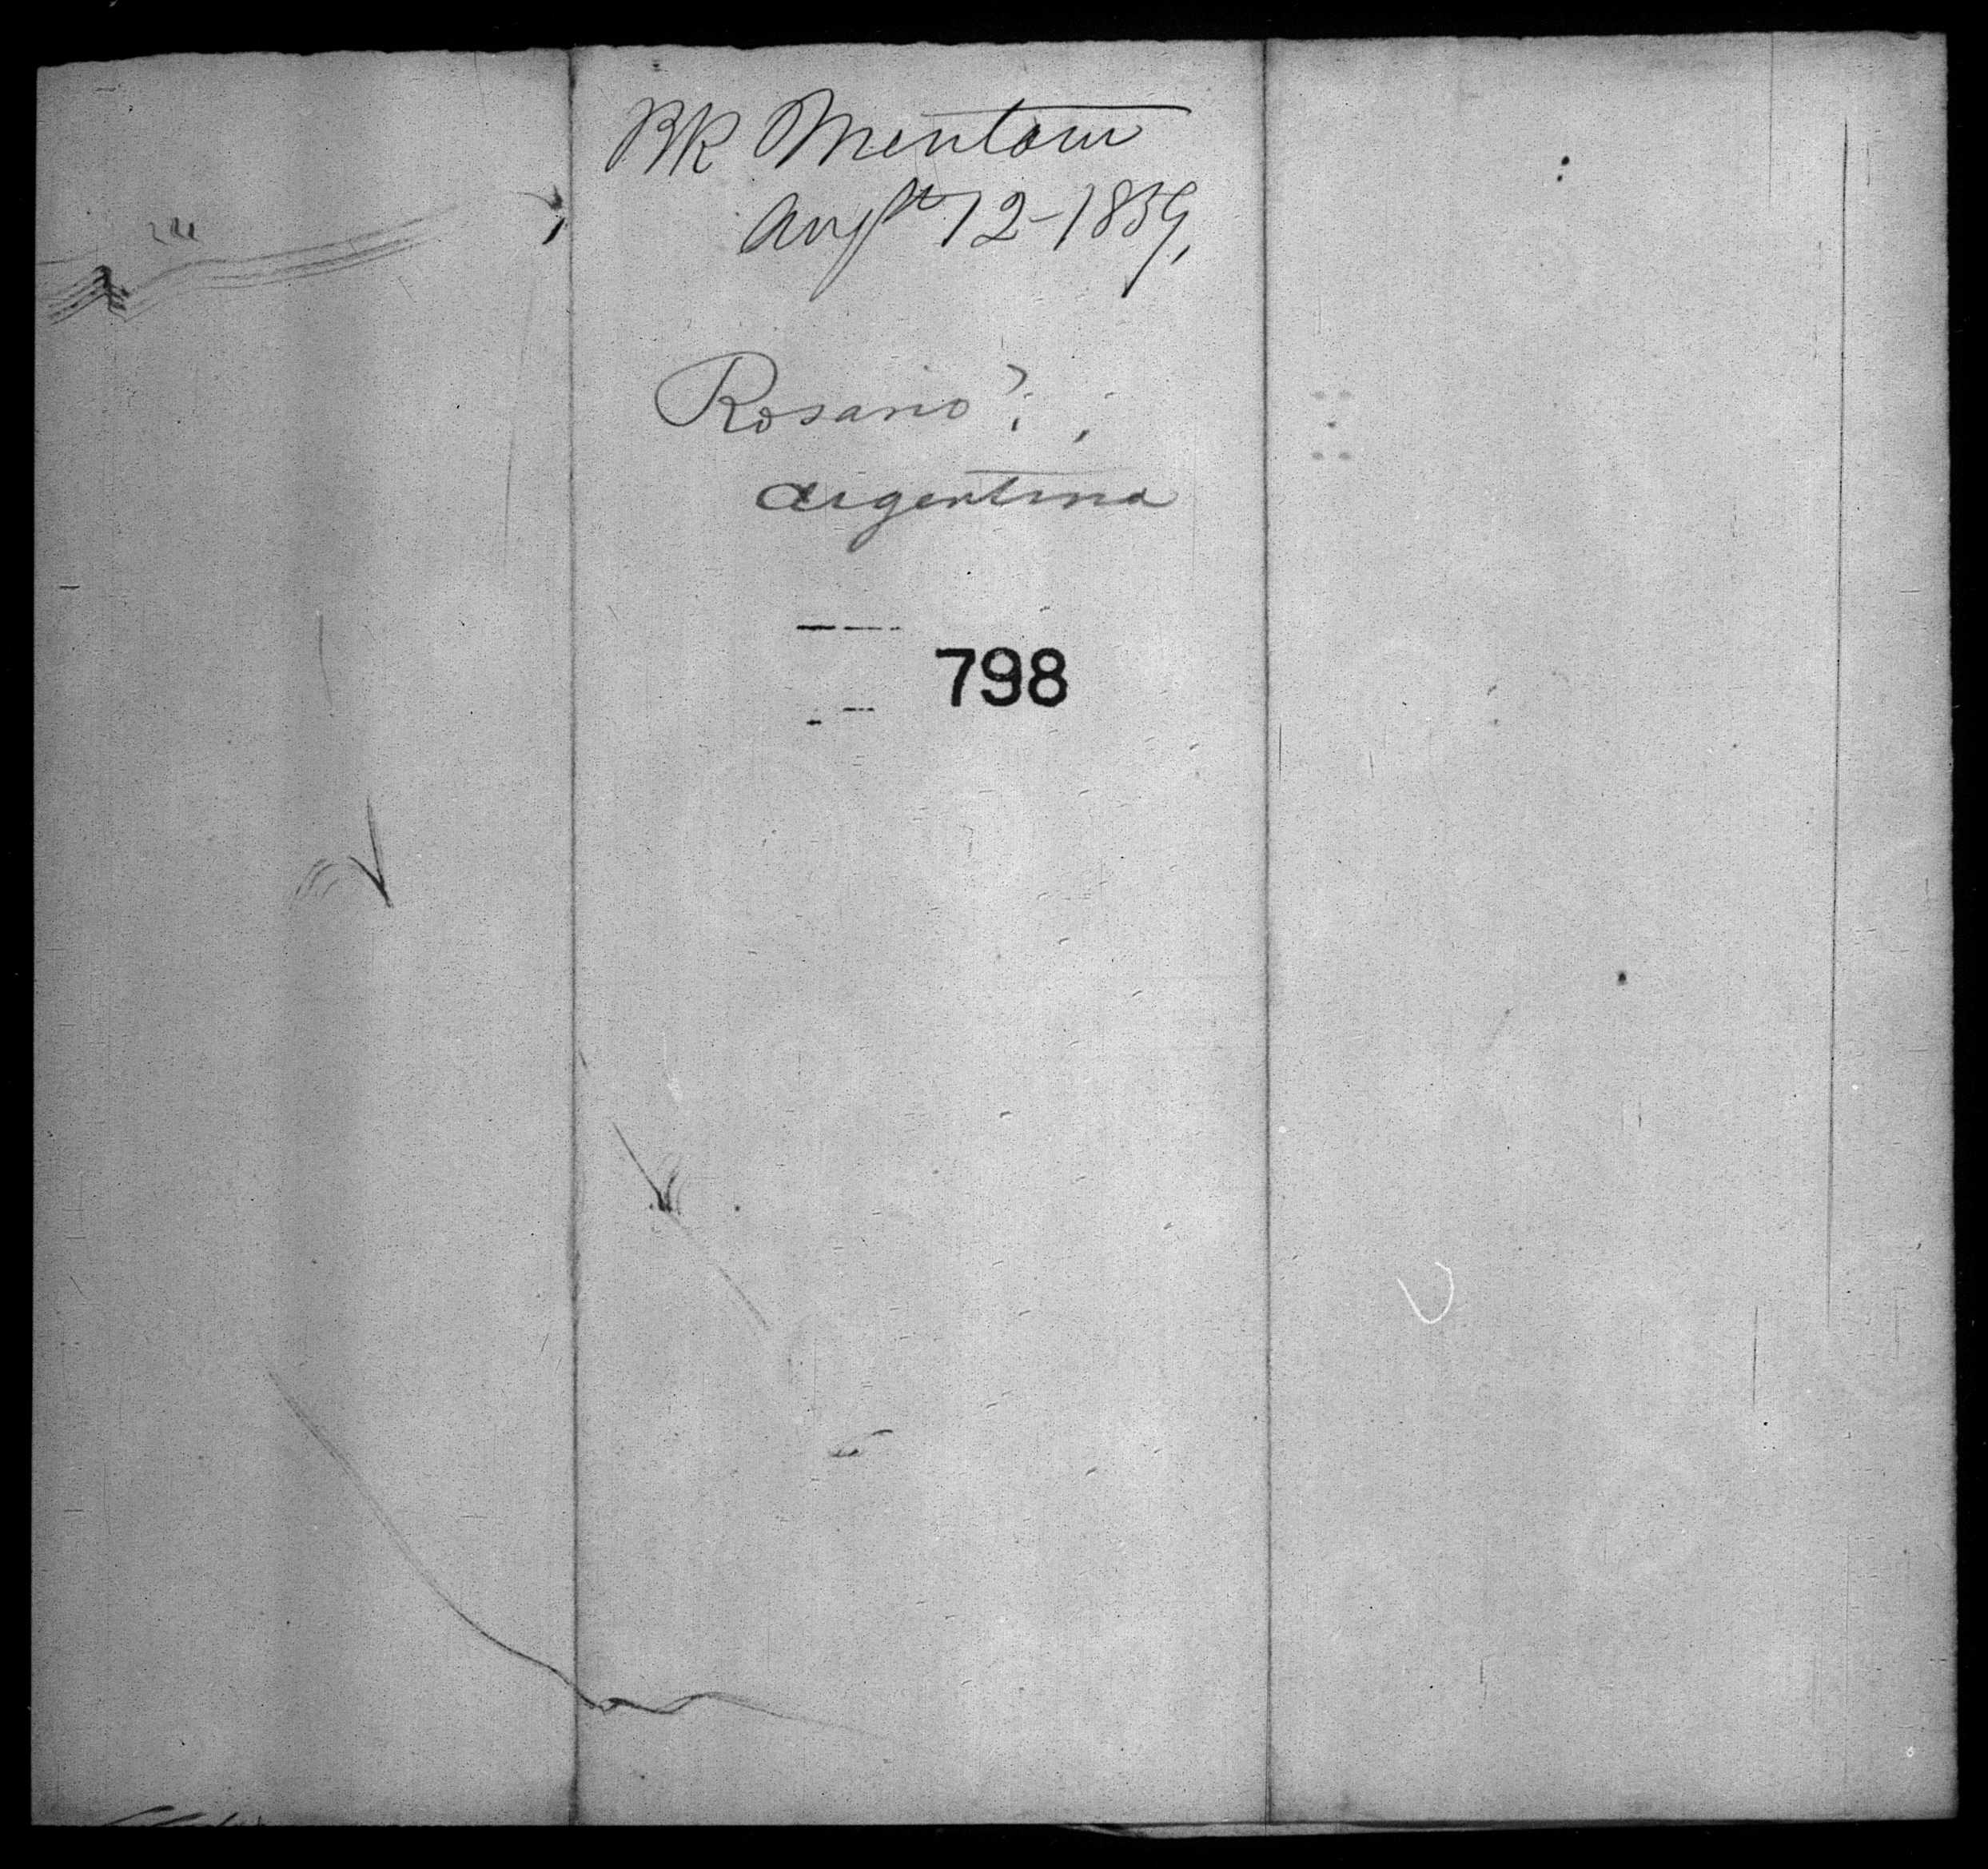 BK Mentour
Augst 12-1859,
Rosario?
Argentina
798